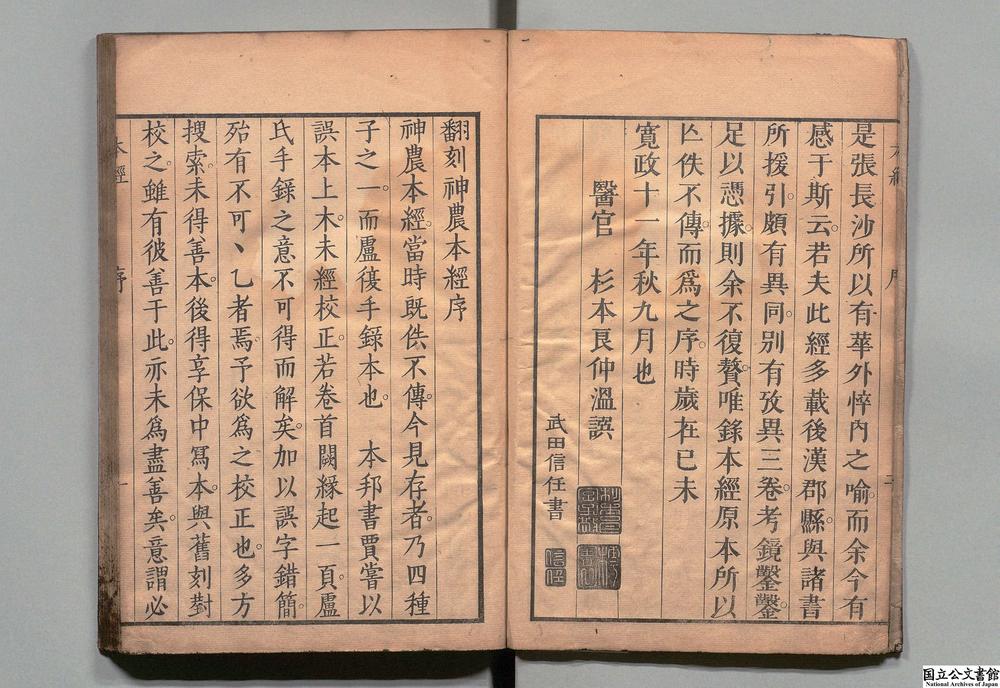 是張長沙所以有華外悴内之喻而余今有
感于斯云若夫此經多載後漢郡縣與諸書
所援引頗有異同別有攷異三卷考鏡鑿鑿
足以憑據則余不復贅唯錄本經原本所以
亾佚不傳而爲之序時歲在己未
寛政十一年秋九月也
醫官 杉本良仲溫誤
武田信任書
翻刻神農本經序
神農本經當時既佚不傳今見存者乃四種
子之一而盧復手錄本也 本邦書賈嘗以
誤本上木未經校正若卷首闕緣起一頁盧
氏手錄之意不可得而解矣加以誤字錯簡
殆有不可丶乙者焉予欲爲之校正也多方
搜索未得善本後得享保中寫本與舊刻對
校之雖有彼善于此亦未爲盡善矣意謂必
本經 序
国立公文書館
National Archives of Japan